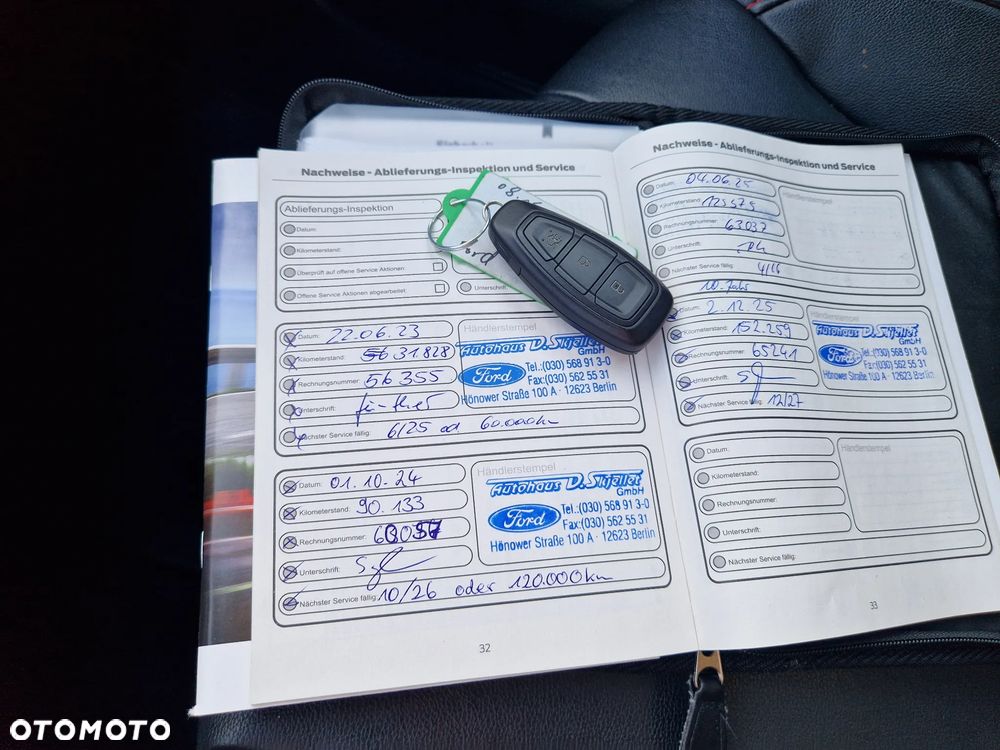 Nachweise - Ablieferungs-Inspektion und Service
Ablieferungs-Inspektion
Datum:
Kilometerstand:
Überprüft auf offene Service Aktionen
Offene Service Aktionen abgearbeitet:
Unterschrift:
Datum: 22.06.23
Kilometerstand: 31.828
Rechnungsnummer: 56355
Unterschrift:
Nächster Service fällig: 6/25 od. 60.000km
Händlerstempel
Autohaus D. Skjellet
GmbH
Ford
Tel.:(030) 568 91 3-0
Fax:(030) 562 55 31
Hönower Straße 100 A · 12623 Berlin
Datum: 01.10.24
Kilometerstand: 90.133
Rechnungsnummer:
Unterschrift:
Nächster Service fällig: 10/26 oder 120.000km
Händlerstempel
Autohaus D. Skjellet
GmbH
Ford
Tel.:(030) 568 91 3-0
Fax:(030) 562 55 31
Hönower Straße 100 A · 12623 Berlin
32
Nachweise - Ablieferungs-Inspektion und Service
Datum: 04.06.25
Kilometerstand:
Rechnungsnummer: 63037
Unterschrift:
Nächster Service fällig:
Händlerstempel
10. Jahr
Datum: 2.12.25
Kilometerstand: 152.259
Rechnungsnummer: 65241
Unterschrift:
Nächster Service fällig: 12/27
Händlerstempel
Autohaus D. Skjellet
GmbH
Ford
Tel.:(030) 568 91 3-0
Fax:(030) 562 55 31
Hönower Straße 100 A · 12623 Berlin
Datum:
Kilometerstand:
Rechnungsnummer:
Unterschrift:
Nächster Service fällig:
Händlerstempel
33
OTOMOTO